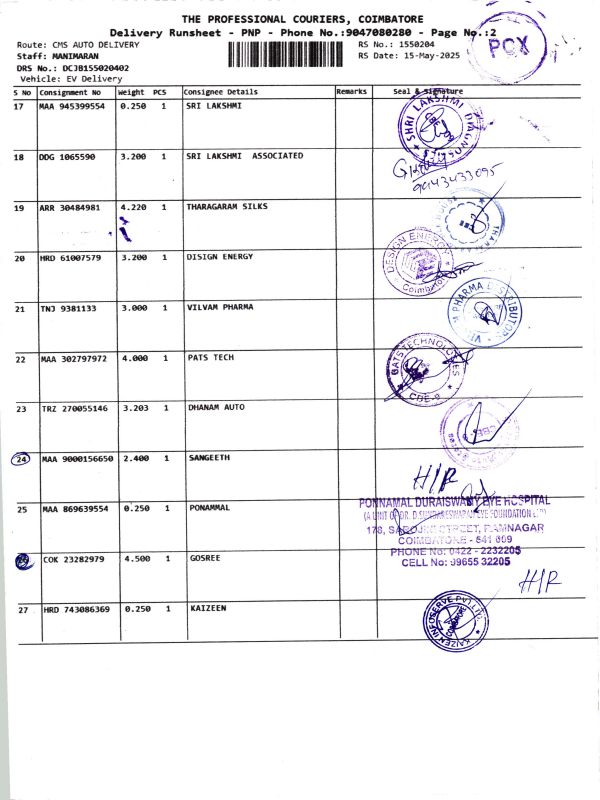 THE PROFESSIONAL COURIERS, COIMBATORE
Delivery Runsheet - PNP - Phone No.:9047080280 - Page No.:2
PCX
Route: CMS AUTO DELIVERY
RS No.: 1550204
Staff: MANIMARAN
RS Date: 15-May-2025
DRS No.: DCJB155020402
Vehicle: EV Delivery
S No Consignment No Weight PCS Consignee Details Remarks Seal & Signature
17 MAA 945399554 0.250 1 SRI LAKSHMI
SHRI LAKSHMI
18 DDG 1065590 3.200 1 SRI LAKSHMI ASSOCIATED
9943433095
19 ARR 30484981 4.220 1 THARAGARAM SILKS
20 HRD 61007579 3.200 1 DISIGN ENERGY
DESIGN ENERGY
Coimbatore
21 TNJ 9381133 3.000 1 VILVAM PHARMA
PHARMA DISTRIBUTORS
22 MAA 302797972 4.000 1 PATS TECH
TECHNOLOGIES
CBE-9
23 TRZ 270055146 3.203 1 DHANAM AUTO
24 MAA 9000156650 2.400 1 SANGEETH
H/R
25 MAA 869639554 0.250 1 PONAMMAL
PONNAMAL DURAISWAMY EYE HOSPITAL
(A UNIT OF DR. D. SUNDARESWARAN EYE FOUNDATION
178, SAROJINI STREET, RAMNAGAR
COIMBATORE - 641 009
PHONE No: 0422 - 2232205
CELL No: 09655 32205
COK 23282979 4.500 1 GOSREE
H/R
27 HRD 743086369 0.250 1 KAIZEEN
KAIZEN INFOSERVE PVT. LTD.